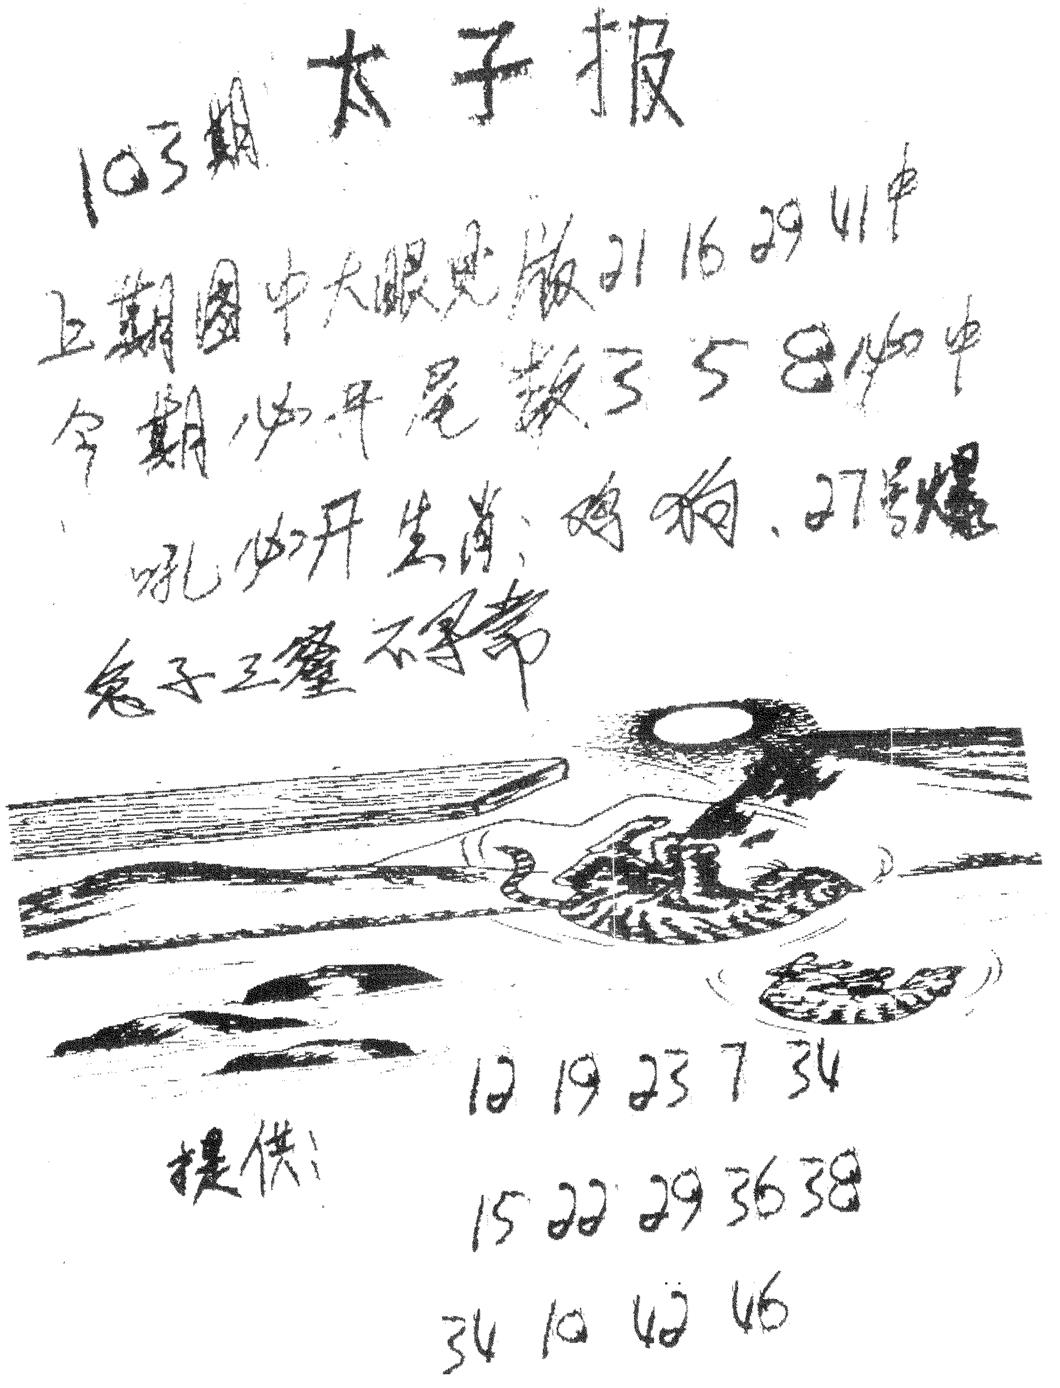 太子报
103期
上期图中大眼见版21 16 29 41中
今期必开尾数3 5 8必中
吼必开生肖:鸡狗.27号爆
兔子三窟不寻常
12 19 23 7 34
提供:
15 22 29 36 38
34 10 42 46